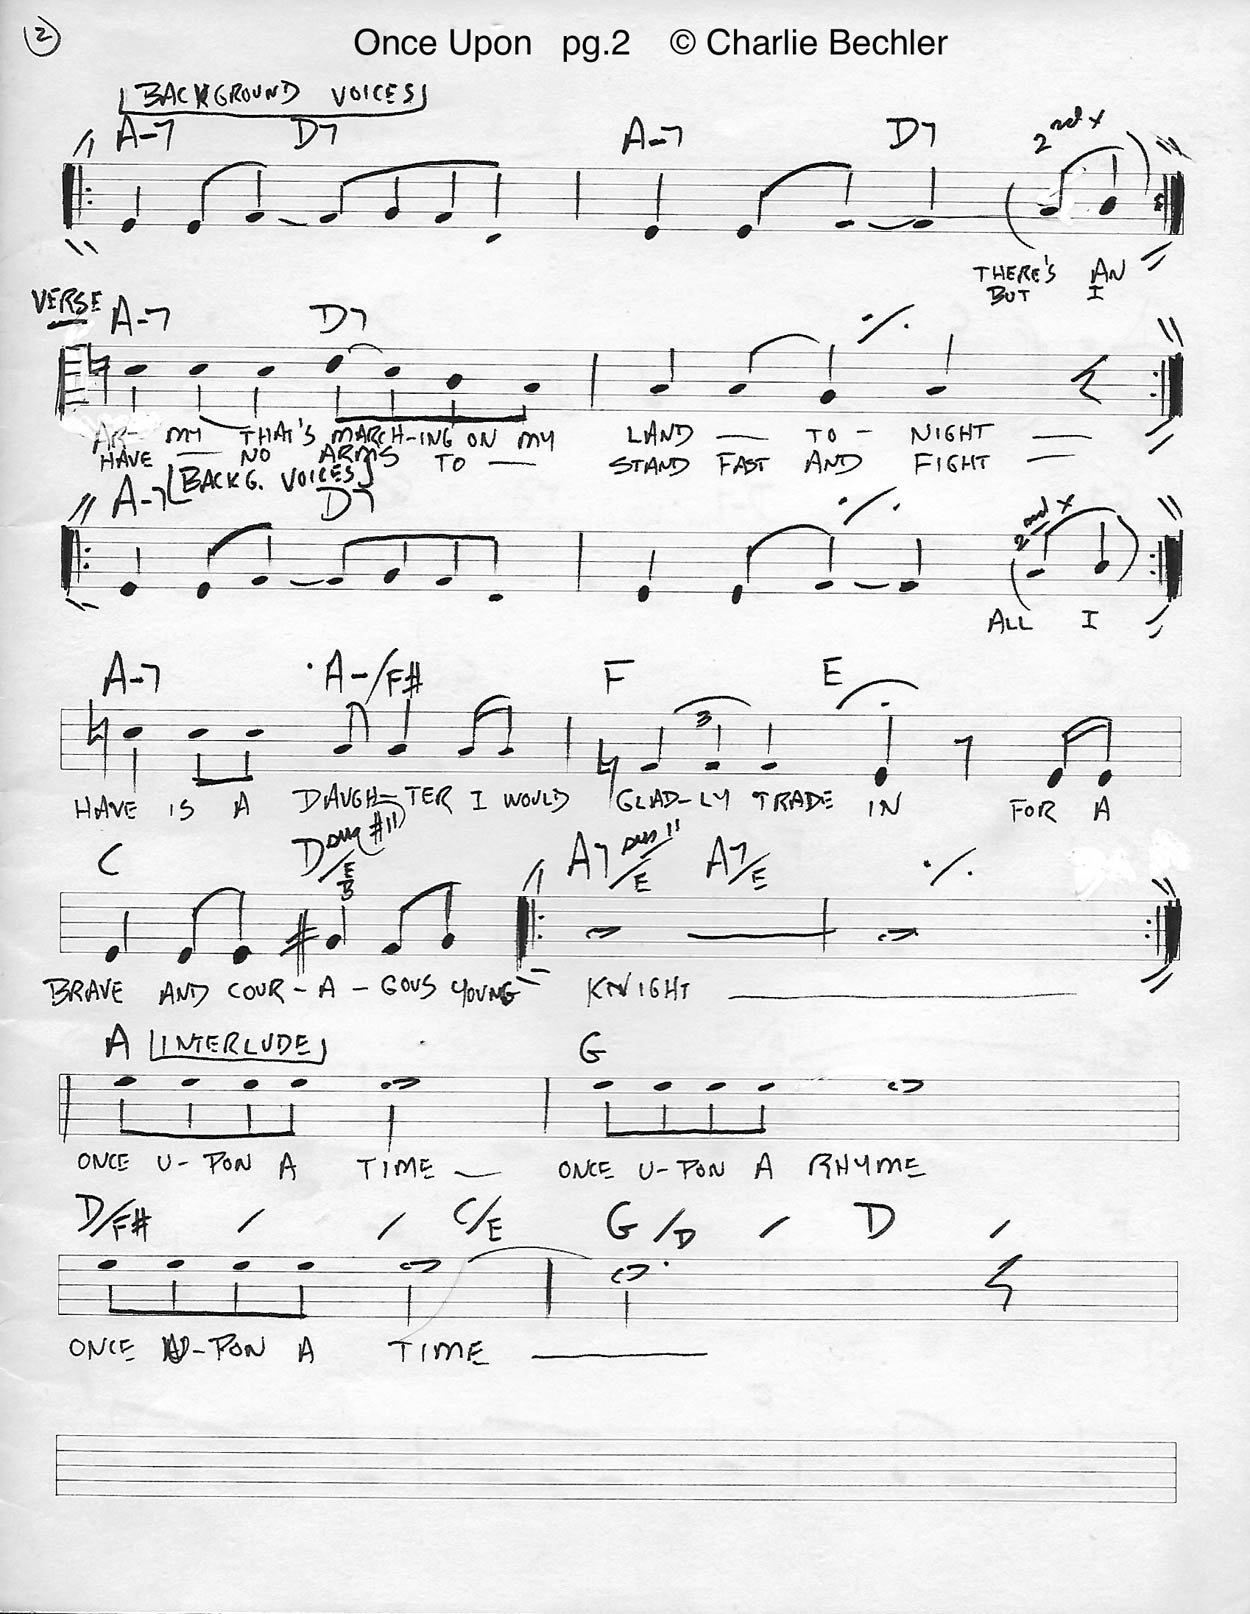 2
Once Upon pg.2 © Charlie Bechler
BACKGROUND VOICES
A-7 D7 A-7 D7 2nd x
THERE'S AN
BUT I
VERSE A-7 D7
AR- MY THAT'S MARCH-ING ON MY LAND — TO- NIGHT —
HAVE — NO ARMS TO — STAND FAST AND FIGHT —
BACKG. VOICES
A-7 D7 2nd x
ALL I
A-7 A-/F# F E
3
HAVE IS A DAUGH-TER I WOULD GLAD-LY TRADE IN FOR A
C D #11/E A7 sus 11/E A7/E
B
BRAVE AND COUR-A-GOUS YOUNG KNIGHT —
A INTERLUDE G
ONCE U-PON A TIME — ONCE U-PON A RHYME
D/F# / / C/E G/D / D /
ONCE U-PON A TIME —